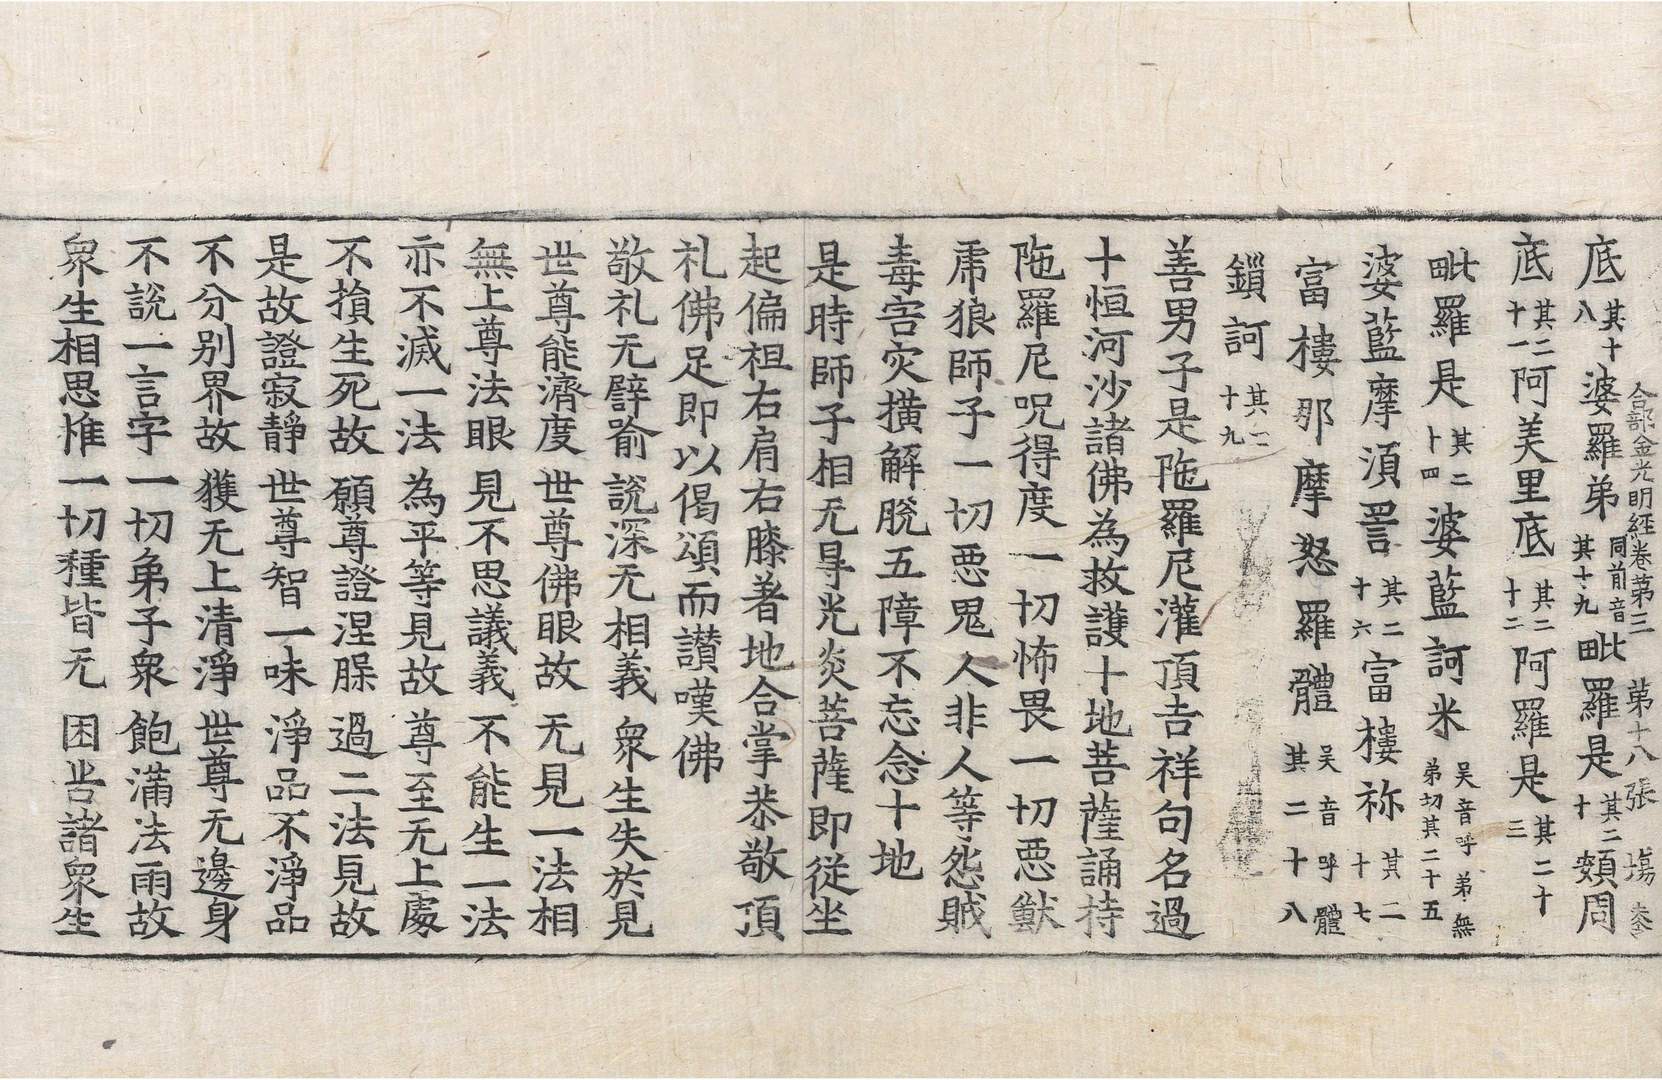 合部金光明經卷第三 第十八張 塲
底其十八婆羅弟同前音其十九毗羅是其二十頞周
底其二十一阿美里底其二十二阿羅是其二十三
毗羅是其二十四婆藍訶米吴音呼弟無弟切其二十五
婆藍摩湏詈其二十六富樓祢其二十七
富樓那摩怒羅體吴音呼體其二十八
鎻訶其二十九
善男子是陁羅尼灌頂吉祥句名過
十恒河沙諸佛為救護十地菩薩誦持
陁羅尼呪得度一切怖畏一切惡獸
虎狼師子一切惡鬼人非人等怨賊
毒害灾撗解脫五障不忘念十地
是時師子相无㝵光炎菩薩即從坐
起偏袒右肩右膝著地合掌恭敬頂
礼佛足即以偈頌而讃嘆佛
敬礼无譬喻 說深无相義 衆生失於見
世尊能濟度 世尊佛眼故 无見一法相
無上尊法眼 見不思議義 不能生一法
亦不滅一法 為平等見故 尊至无上處
不損生死故 願尊證涅槃 過二法見故
是故證寂靜 世尊智一味 淨品不淨品
不分别界故 獲无上清淨 世尊无邊身
不說一言字 一切弟子衆 飽滿法雨故
衆生相思惟 一切種皆无 困苦諸衆生